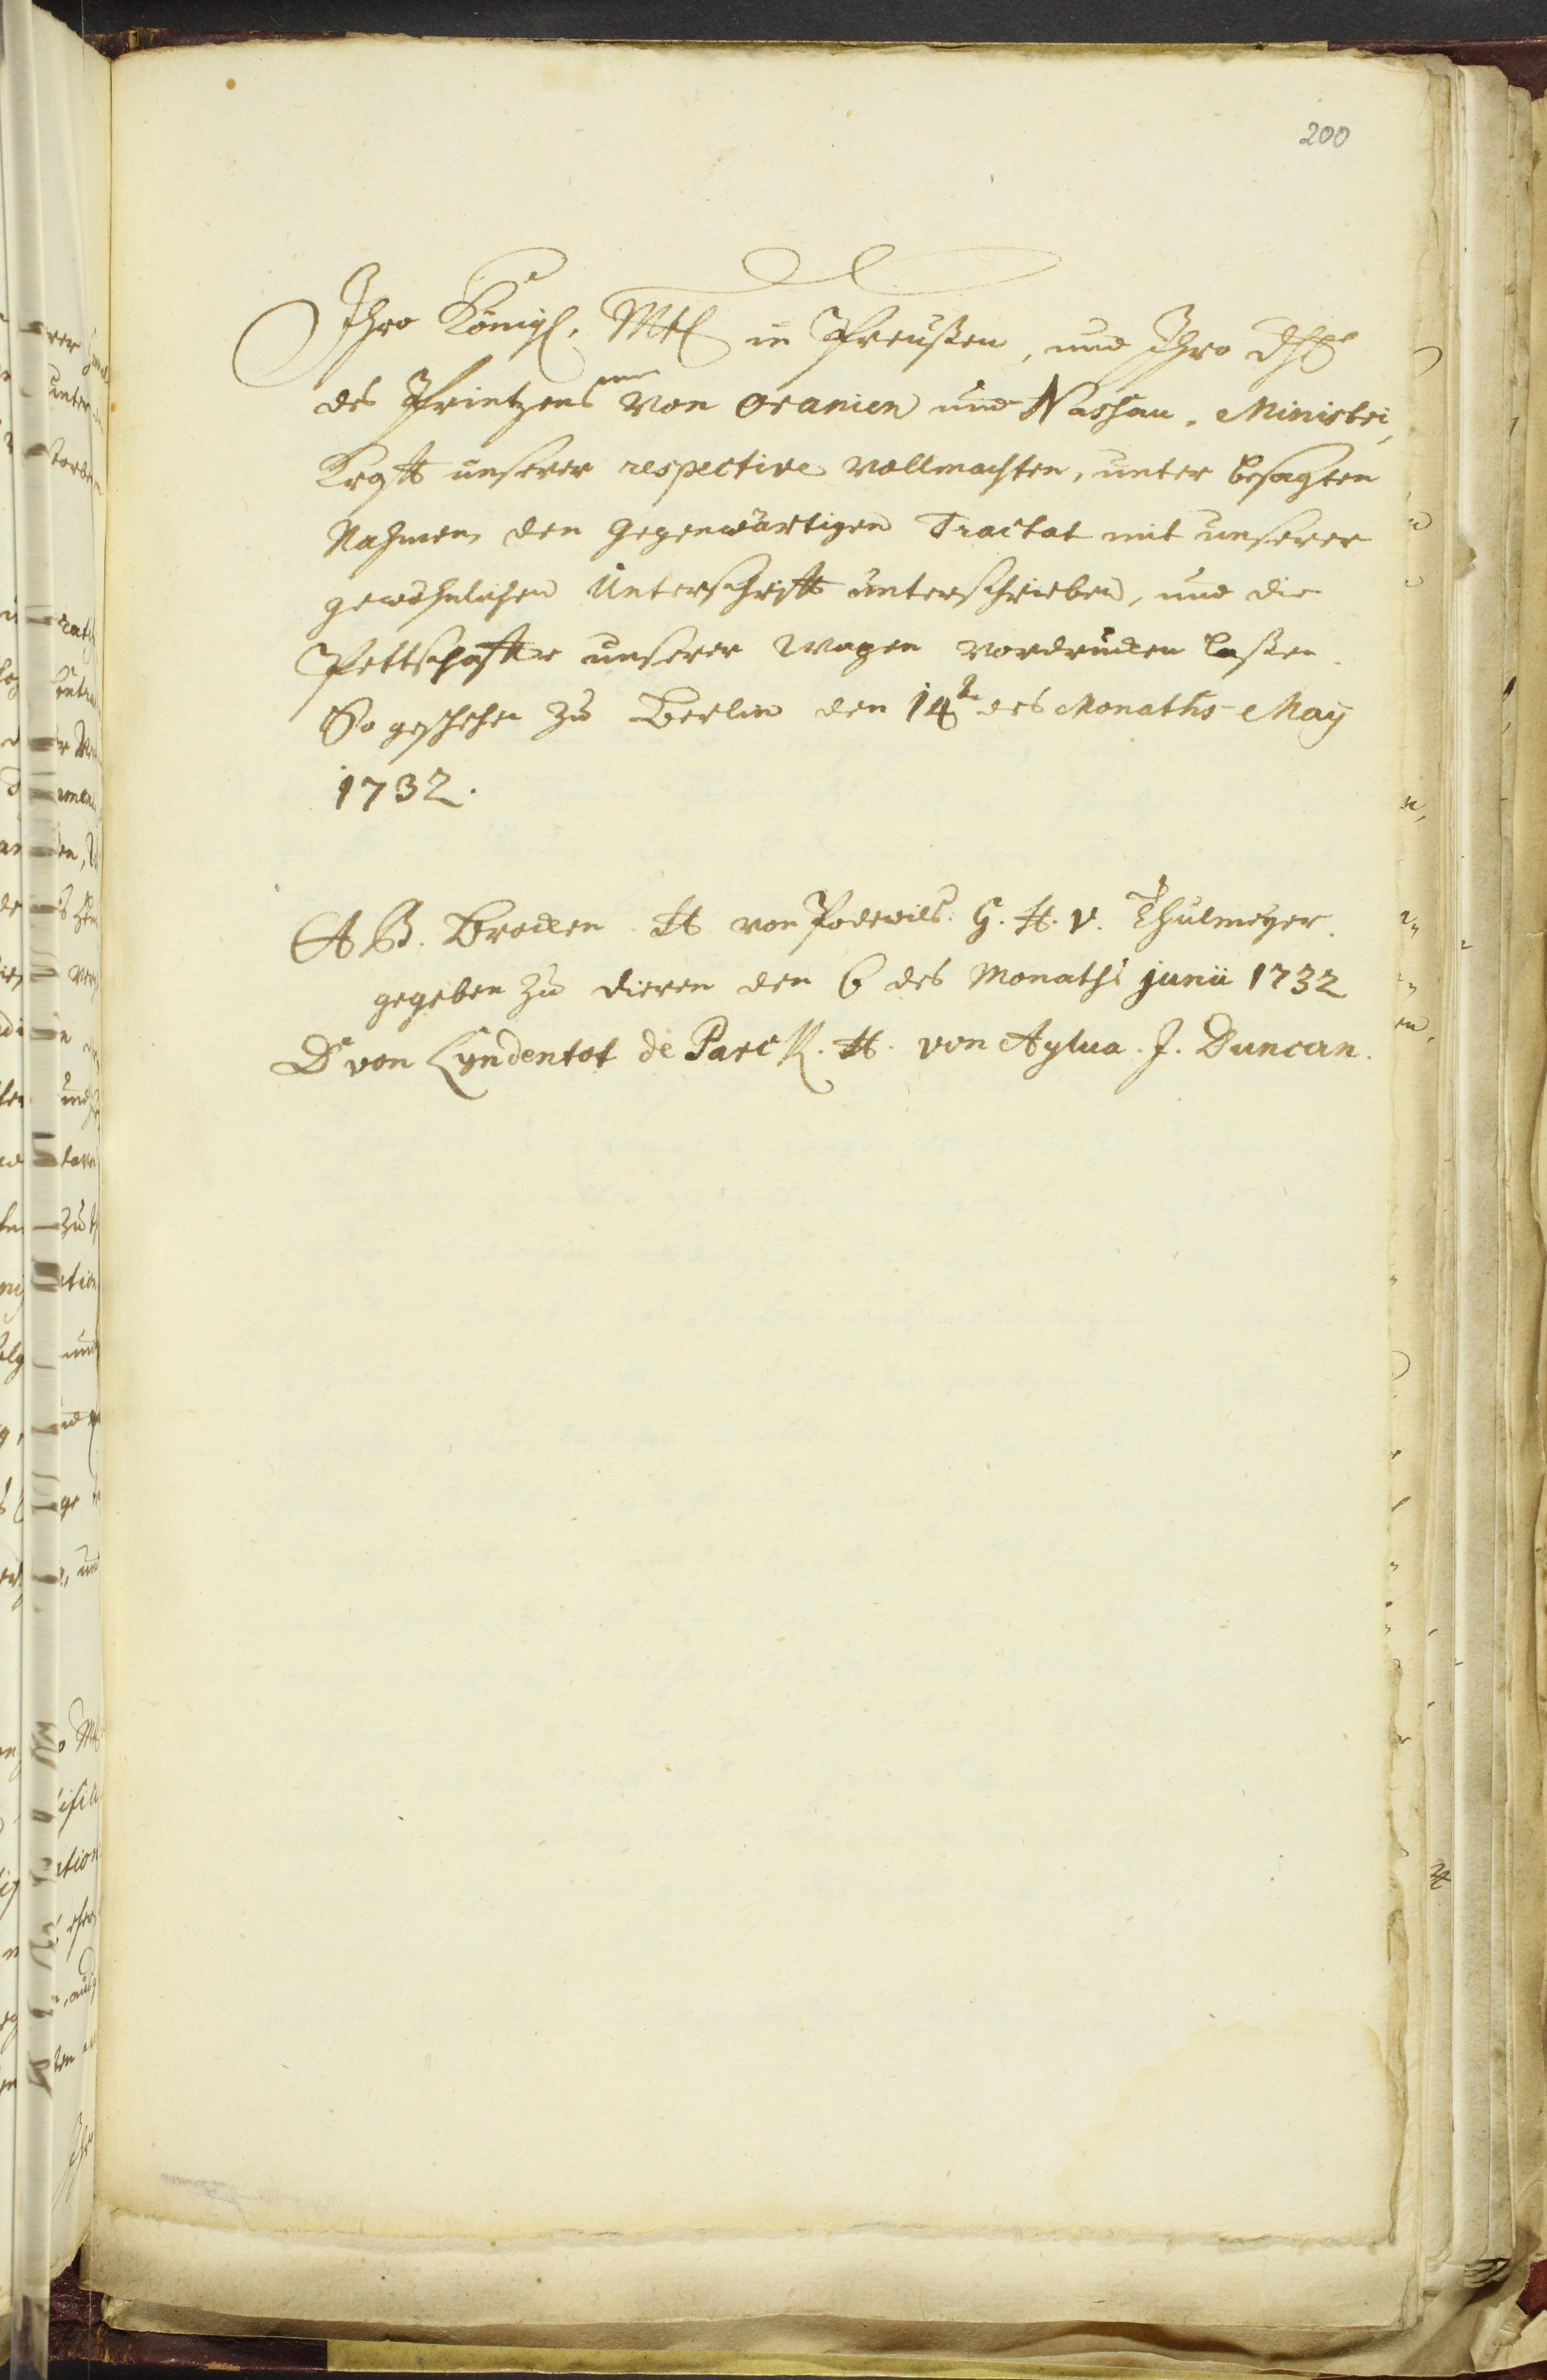 200
Ihro Königl. Mtt in Preußen, und Ihro Dhlt
des Printzens von Oranien und Nassau. Ministri,
Krafft unserer respective vollmachten, unter besagten
Nahmen den Gegenwärtigen Tractat mit unserer
gewöhnlichen Unterschrifft unterschrieben, und die
Pettschaffte unserer Wapen vordrucken laßen.
So geschehen zu Berlin den 14 des Monaths May
1732.
A B. Brocken H von Podewils. G. H. v. Thulmeyer.
gegeben zu dieren den 6 des Monaths junii 1732
D von Lyndentot de Parck. H. von Aylua. J. Duncan.